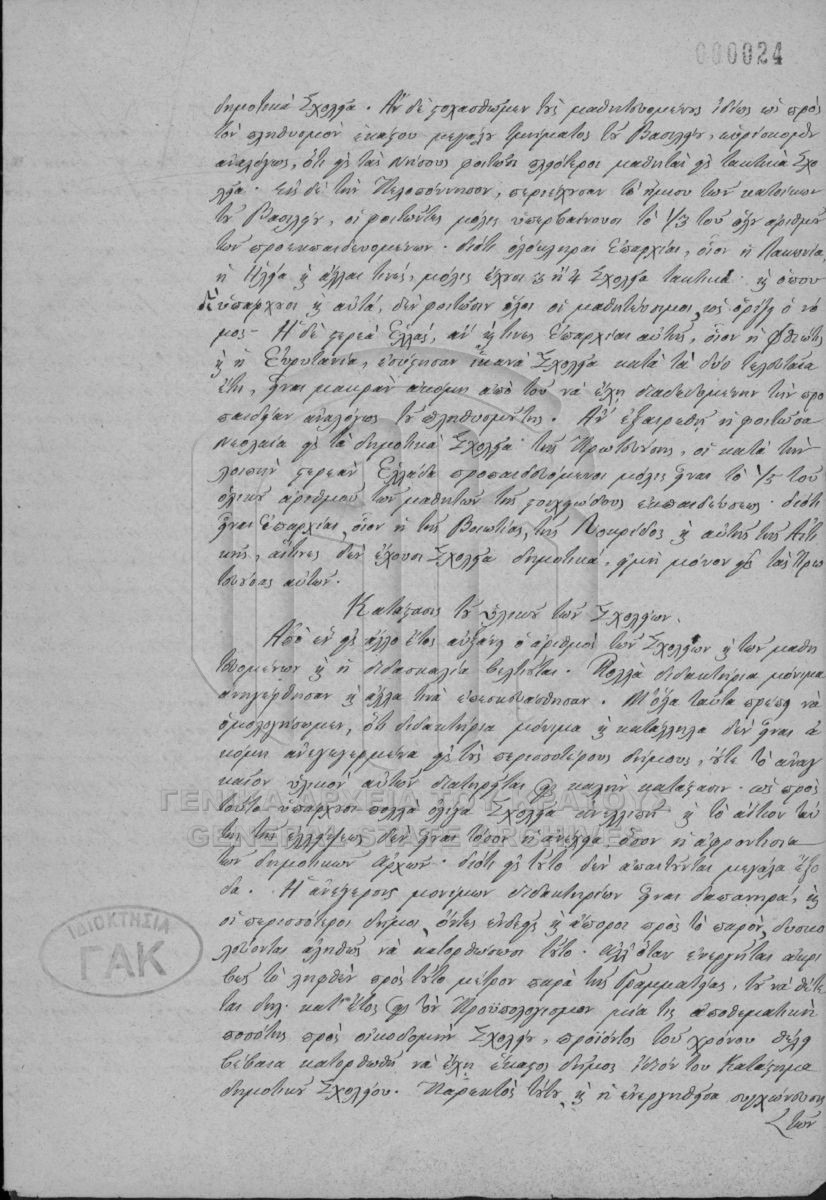 000024
δημοτικὰ Σχολεῖα. Ἂν δὲ στοχασθῶμεν τοὺς μαθητευομένους ἰδίως ὡς πρὸς
τὸν πληθυσμὸν ἑκάστου μεγάλου τμήματος τοῦ Βασιλείου, εὑρίσκομεν
ἀναλόγως, ὅτι εἰς τὰς Νήσους φοιτῶσι πλειότεροι μαθηταὶ εἰς τακτικὰ Σχο
λεῖα. Εἰς δὲ τὴν Πελοπόννησον, περιέχουσαν τὸ ἥμισυ τῶν κατοίκων
τοῦ Βασιλείου, οἱ φοιτῶντες μόλις ὑπερβαίνουσι τὸ 1/3 τοῦ ὅλου ἀριθμοῦ
τῶν προεκπαιδευομένων· διότι ὁλόκληροι Ἐπαρχίαι, οἷον ἡ Λακωνία,
ἡ Ἠλεία καὶ ἄλλαι τινές, μόλις ἔχουσι 3 ἢ 4 Σχολεῖα τακτικά· καὶ ὅπου
δὲ ὑπάρχουσι καὶ αὐτά, δὲν φοιτῶσιν ὅλοι οἱ μαθητεύσιμοι, ὡς ὁρίζει ὁ νό
μος— Ἡ δὲ στερεὰ Ἑλλάς, ἂν καὶ τινες Ἐπαρχίαι αὐτῆς, οἷον ἡ Φθιῶτις
καὶ ἡ Εὐρυτανία, ἐσύστησαν ἱκανὰ Σχολεῖα κατὰ τὰ δύο τελευταῖα
ἔτη, εἶναι μακρὰν ἀκόμη ἀπὸ τοῦ νὰ ἔχῃ διαδεδομένην τὴν προ
παιδείαν ἀναλόγως τοῦ πληθυσμοῦ της. Ἂν ἐξαιρεθῇ ἡ φοιτῶσα
Νεολαία εἰς τὰ δημοτικὰ Σχολεῖα τῆς Πρωτευούσης, οἱ κατὰ τὴν
λοιπὴν στερεὰν Ἑλλάδα προπαιδευόμενοι μόλις εἶναι τὸ 1/5 τοῦ
ὁλικοῦ ἀριθμοῦ τῶν μαθητῶν τῆς στοιχειώδους ἐκπαιδεύσεως· διότι
εἶναι Ἐπαρχίαι, οἷον ἡ τῆς Βοιωτίας, τῆς Λοκρίδος καὶ αὐτῆς τῆς Ἀττι
κῆς, αἵτινες δὲν ἔχουσι Σχολεῖα δημοτικά, εἰμὴ μόνον εἰς τὰς Πρω
τευούσας αὐτῶν.
Κατάστασις τοῦ ὑλικοῦ τῶν Σχολείων.
Ἀπὸ ἓν εἰς ἄλλο ἔτος αὐξάνει ὁ ἀριθμὸς τῶν Σχολείων καὶ τῶν μαθη
τευομένων καὶ ἡ διδασκαλία βελτιοῦται. Πολλὰ διδακτήρια μόνιμα
ἀνηγέρθησαν καὶ ἄλλα τινὰ ἐπεσκευάσθησαν. Μ' ὅλα ταῦτα πρέπει νὰ
ὁμολογήσωμεν, ὅτι διδακτήρια μόνιμα καὶ κατάλληλα δὲν εἶναι ἀ
κόμη ἀνεγηγερμένα εἰς τοὺς περισσοτέρους δήμους, οὔτε τὸ ἀναγ
καῖον ὑλικὸν αὐτῶν διατηρεῖται εἰς καλὴν κατάστασιν· ὡς πρὸς
τοῦτο ὑπάρχουσι πολλὰ ὀλίγα Σχολεῖα ἀνελλιπῆ καὶ τὸ αἴτιον ταύ
της τῆς ἐλλείψεως δὲν εἶναι τόσον ἡ ἀνέχεια ὅσον ἡ ἀφροντισία
τῶν δημοτικῶν ἀρχῶν· διότι εἰς τοῦτο δὲν ἀπαιτοῦνται μεγάλα ἔξο
δα. Ἡ ἀνέγερσις μονίμων διδακτηρίων εἶναι δαπανηρά, καὶ
οἱ περισσότεροι δῆμοι, ὄντες ἐνδεεῖς καὶ ἄποροι πρὸς τὸ παρόν, δυσκο
λεύονται ἀληθῶς νὰ κατορθώσωσι τοῦτο. Ἀλλ' ὅταν ἐνεργῆται ἀκρι
βῶς τὸ ληφθὲν πρὸς τοῦτο μέτρον παρὰ τῆς Γραμματείας, τοῦ νὰ θέτε
ται δηλ. κατ' ἔτος εἰς τὸν Προϋπολογισμὸν μία τις ἀποθεματικὴ
ποσότης πρὸς οἰκοδομὴν Σχολείου, προϊόντος τοῦ χρόνου θέλει
βέβαια κατορθωθῆ νὰ ἔχῃ ἕκαστος δῆμος ἴδιόν του Κατάστημα
δημοτικοῦ Σχολείου. Παρεκτὸς τούτου, καὶ ἡ ἐνεργηθεῖσα συγχώνευσις
τῶν
ΙΔΙΟΚΤΗΣΙΑ
ΓΑΚ
ΓΕΝΙΚΑ ΑΡΧΕΙΑ ΤΟΥ ΚΡΑΤΟΥΣ
GENERAL STATE ARCHIVES